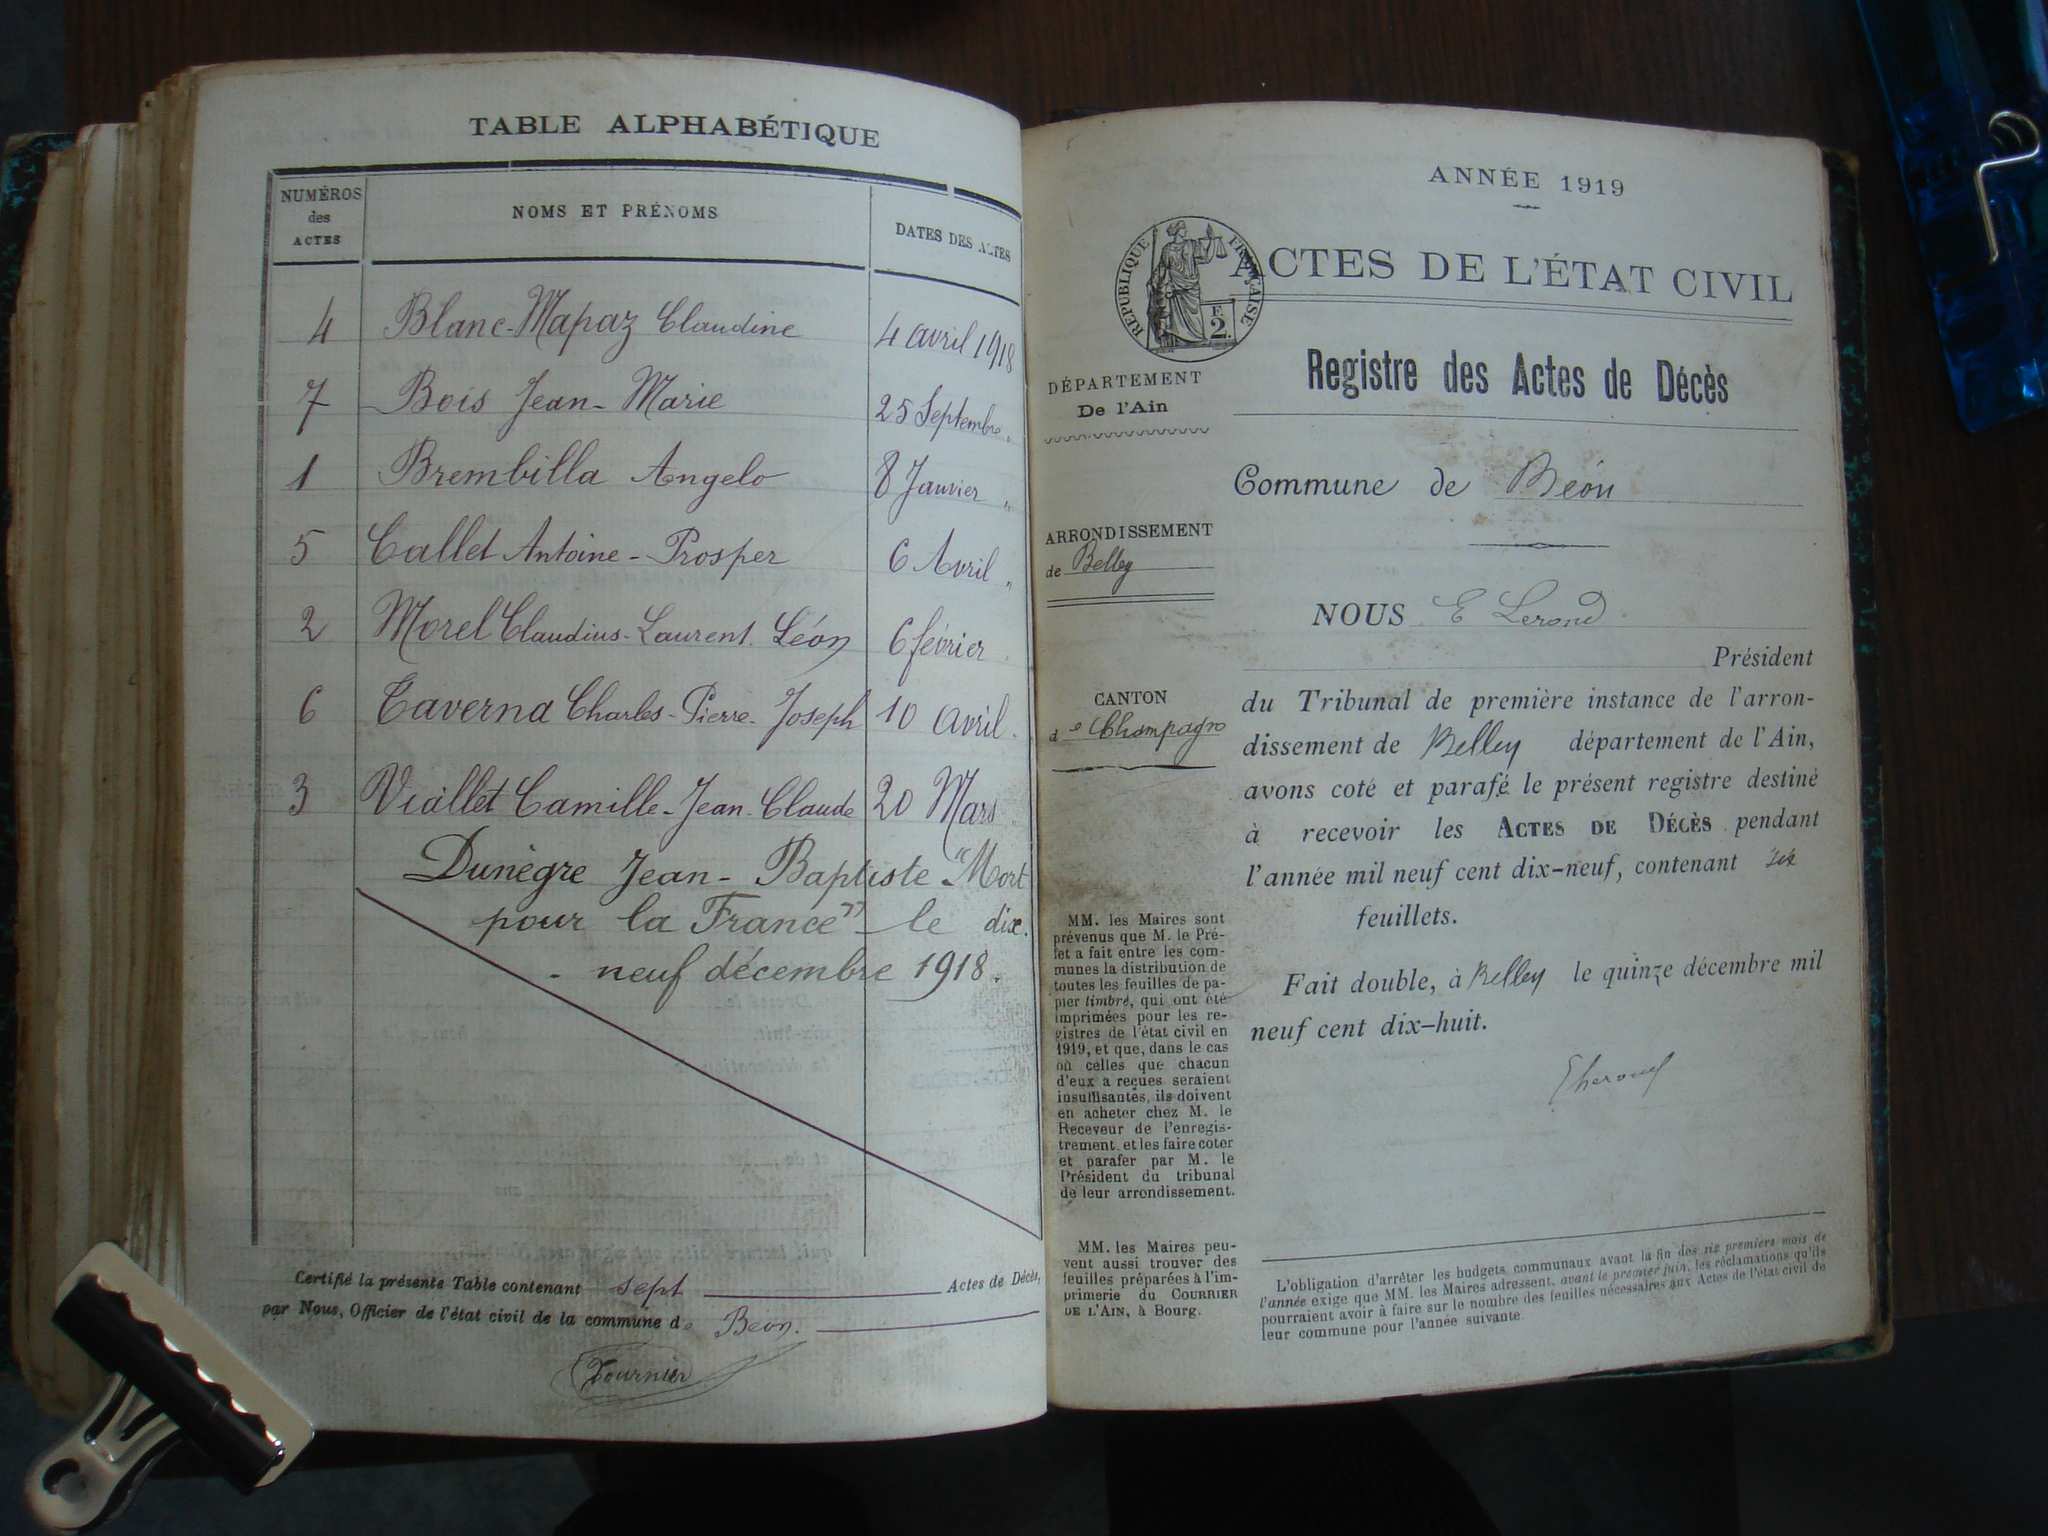 TABLE ALPHABÉTIQUE
NUMÉROS des ACTES NOMS ET PRÉNOMS DATES DES ACTES
4 Blanc-Mapaz Claudine 4 avril 1918
7 Bois Jean-Marie 25 Septembre "
1 Brembilla Angelo 8 Janvier "
5 Callet Antoine-Prosper 6 Avril "
2 Morel Claudius-Laurent Léon 6 février
6 Taverna Charles-Pierre-Joseph 10 avril.
3 Viallet Camille-Jean-Claude 20 Mars
Dunègre Jean-Baptiste "Mort
pour la France" le dix.
- neuf décembre 1918.
Certifié la présente Table contenant sept Actes de Décès,
par Nous, Officier de l'état civil de la commune de Béon.
Fournier
ANNÉE 1919
RÉPUBLIQUE FRANÇAISE
2 F.
ACTES DE L'ÉTAT CIVIL
Registre des Actes de Décès
DÉPARTEMENT
De l'Ain
Commune de Béon
ARRONDISSEMENT
de Belley
CANTON
de Champagne
NOUS E
Président
du Tribunal de première instance de l'arron-
dissement de Belley département de l'Ain,
avons coté et parafé le présent registre destiné
à recevoir les ACTES DE DÉCÈS pendant
l'année mil neuf cent dix-neuf, contenant six
feuillets.
Fait double, à Belley le quinze décembre mil
neuf cent dix-huit.
MM. les Maires sont
prévenus que M. le Pré-
fet a fait entre les com-
munes la distribution de
toutes les feuilles de pa-
pier timbré, qui ont été
imprimées pour les re-
gistres de l'état civil en
1919, et que, dans le cas
où celles que chacun
d'eux a reçues seraient
insuffisantes, ils doivent
en acheter chez M. le
Receveur de l'enregis-
trement et les faire coter
et parafer par M. le
Président du tribunal
de leur arrondissement.
MM. les Maires peu-
vent aussi trouver des
feuilles préparées à l'im-
primerie du COURRIER
DE L'AIN, à Bourg.
L'obligation d'arrêter les budgets communaux avant la fin des six premiers mois de
l'année exige que MM. les Maires adressent, avant le premier juin, les réclamations qu'ils
pourraient avoir à faire sur le nombre des feuilles nécessaires aux Actes de l'état civil de
leur commune pour l'année suivante.